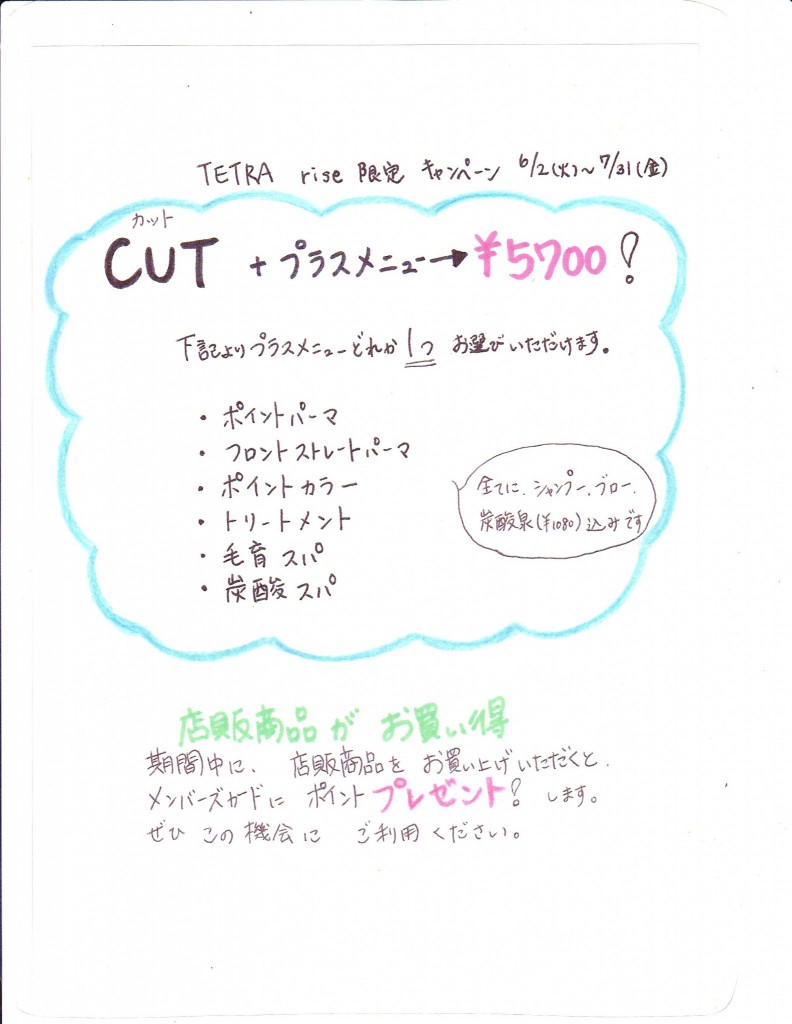 TETRA rise 限定 キャンペーン 6/2(火)~7/31(金)
カット
CUT + プラスメニュー→¥5700!
下記よりプラスメニューどれか1つ お選びいただけます。
・ポイントパーマ
・フロントストレートパーマ
・ポイントカラー
・トリートメント
・毛育スパ
・炭酸スパ
全てに、シャンプー、ブロー、
炭酸泉(¥1080)込みです
店販商品が お買い得
期間中に、店販商品を お買い上げいただくと、
メンバーズカードに ポイントプレゼント! します。
ぜひ この機会に ご利用ください。